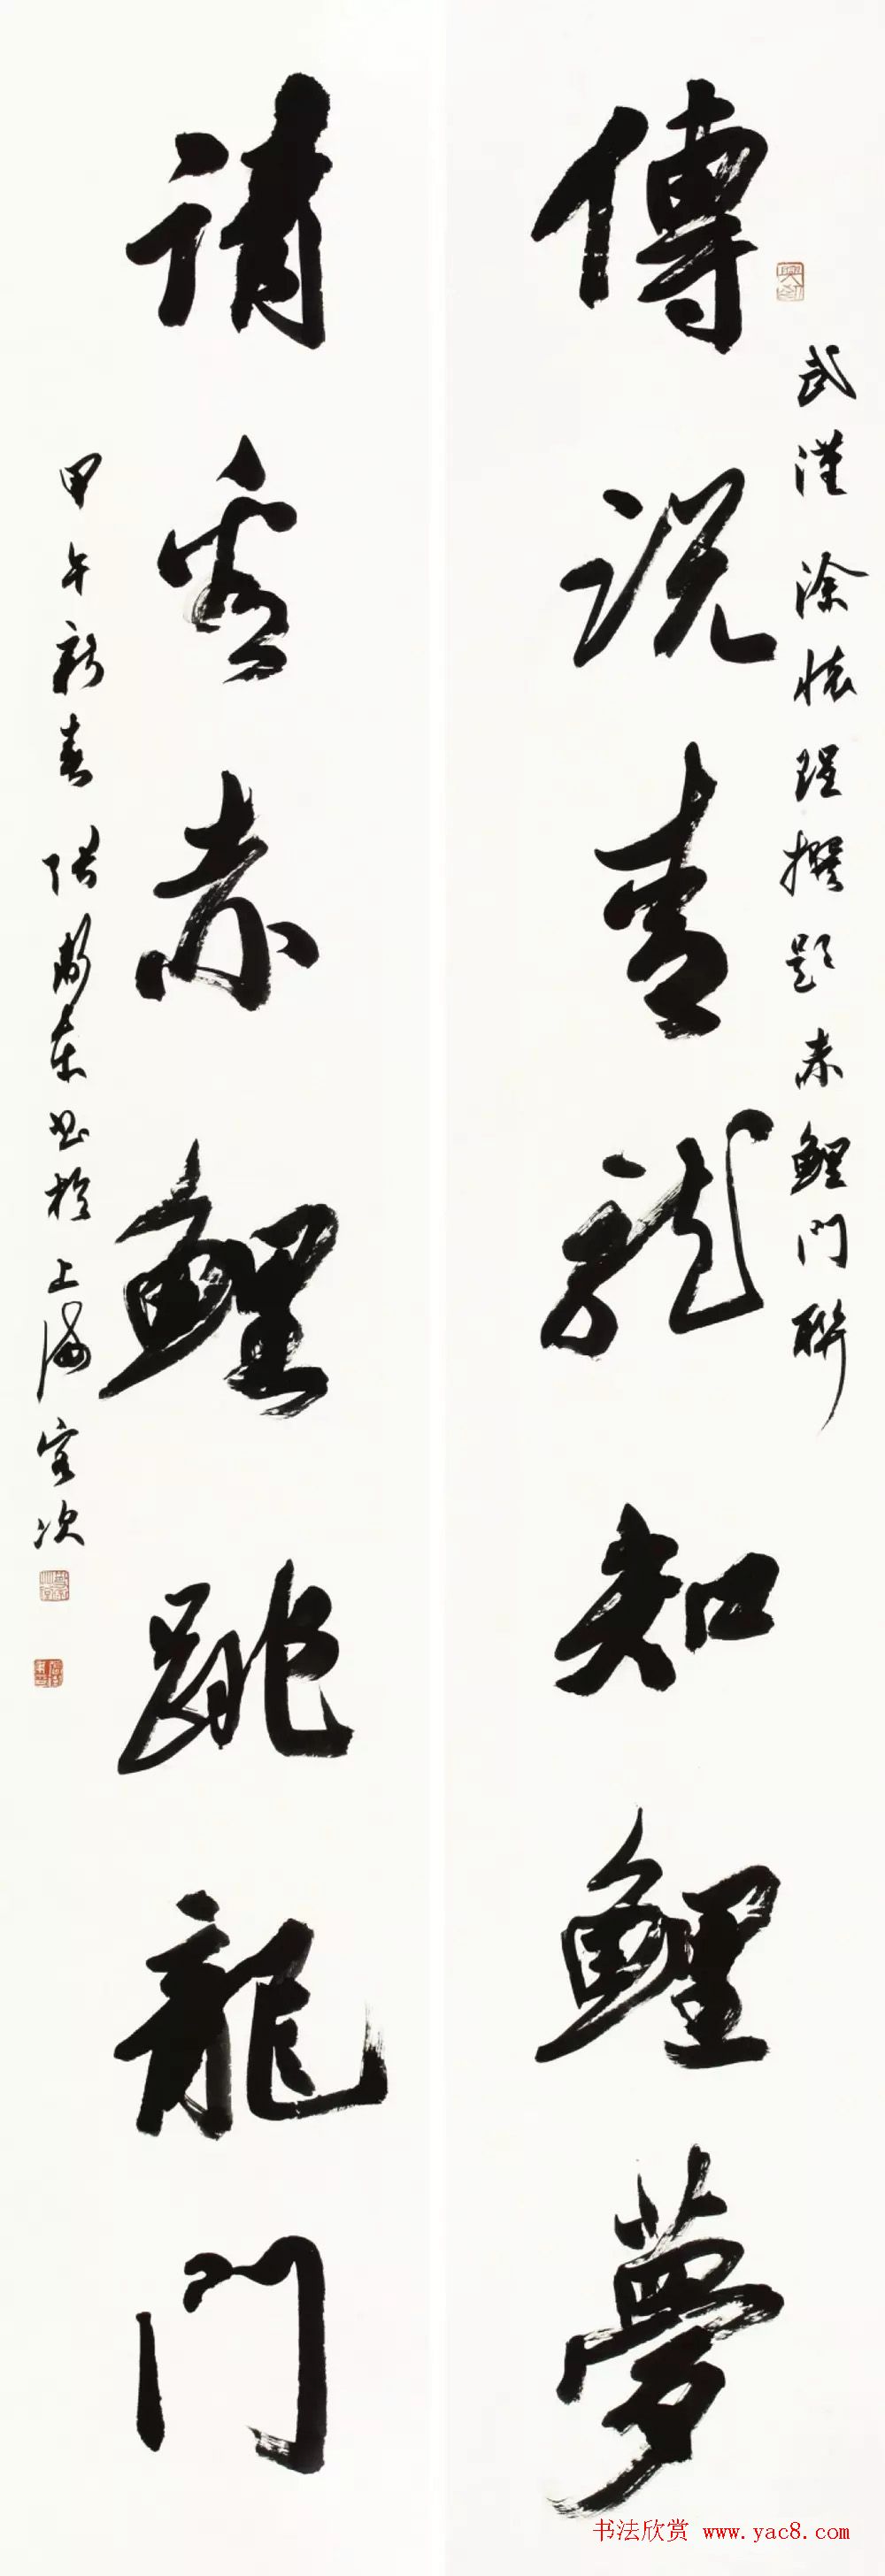 武漢涂懷珵撰題赤鯉門聯
傳說青龍知鯉夢
請看赤鯉跳龍門
甲午新春張東書於上海客次
书法欣赏 www.yac8.com